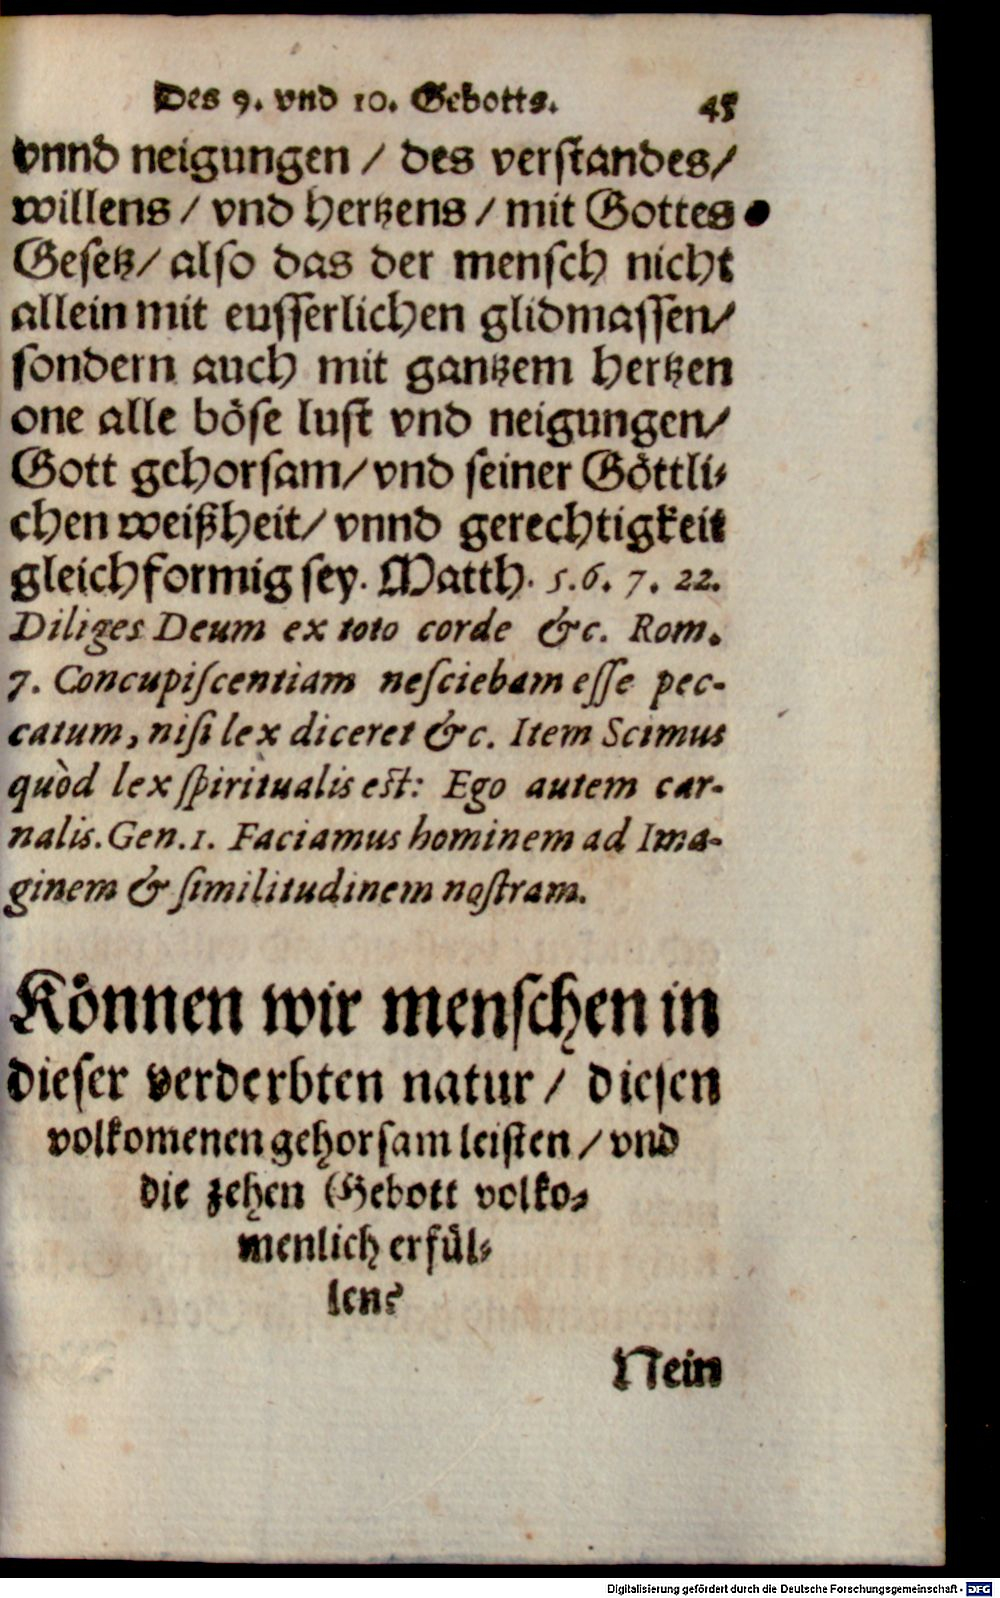 Des 9. vnd 10. Gebotts. 45
vnnd neigungen / des verſtandes/
willens / vnd hertzens / mit Gottes
Geſetz/ alſo das der menſch nicht
allein mit euſſerlichen glidmaſſen/
ſondern auch mit gantzem hertzen
one alle böſe luſt vnd neigungen/
Gott gehorſam/ vnd ſeiner Göttli⸗
chen weißheit/ vnnd gerechtigkeit
gleichformig ſey. Matth. 5.6. 7. 22.
Diliges Deum ex toto corde &c. Rom.
7. Concupiſcentiam neſciebam eſſe pec-
catum, niſi lex diceret &c. Item Scimus
quòd lex ſpiritualis eſt: Ego autem car-
nalis. Gen.1. Faciamus hominem ad Ima-
ginem & ſimilitudinem noſtram.
Können wir menſchen in
dieſer verderbten natur / dieſen
volkomenen gehorſam leiſten / vnd
die zehen Gebott volko⸗
menlich erfül⸗
len?
Nein
Digitalisierung gefördert durch die Deutsche Forschungsgemeinschaft - DFG